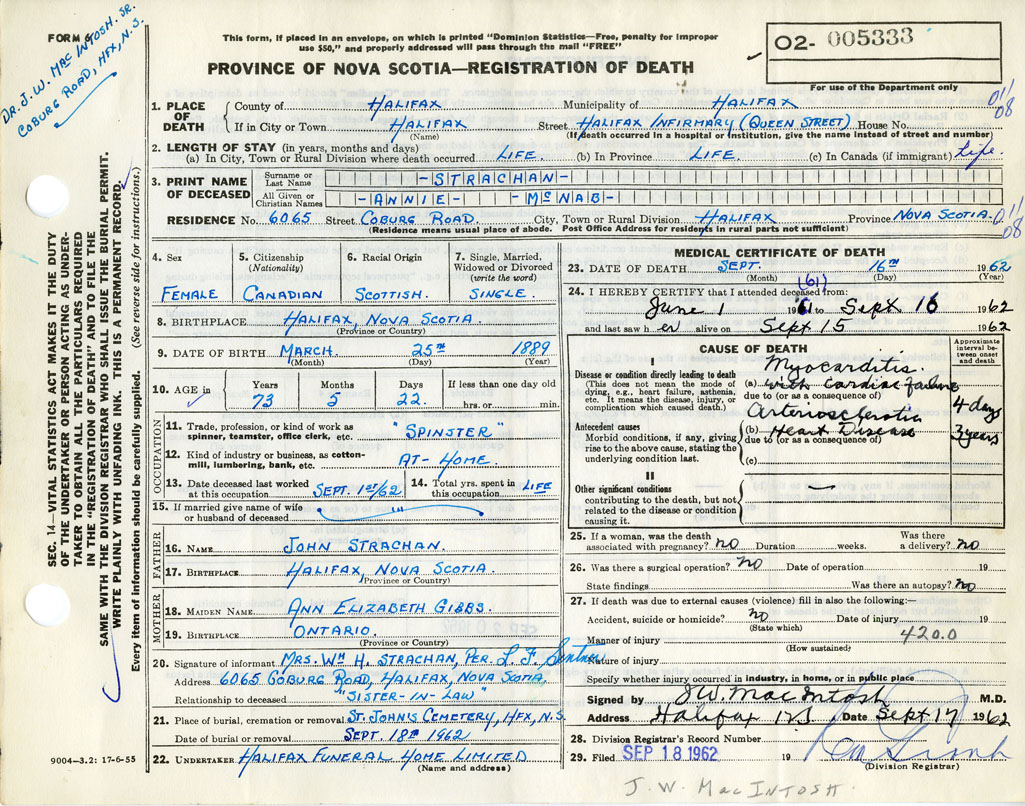 FORM 6
DR. J. W. MAC INTOSH. SR.
COBURG ROAD, HFX, N.S.
This form, if placed in an envelope, on which is printed "Dominion Statistics—Free, penalty for improper
use $50," and properly addressed will pass through the mail "FREE"
PROVINCE OF NOVA SCOTIA—REGISTRATION OF DEATH
02- 005333
For use of the Department only
011
08
1. PLACE OF DEATH { County of HALIFAX Municipality of HALIFAX
If in City or Town HALIFAX Street HALIFAX INFIRMARY (QUEEN STREET) House No.
(Name) (If death occurred in a hospital or institution, give the name instead of street and number)
2. LENGTH OF STAY (in years, months and days)
(a) In City, Town or Rural Division where death occurred LIFE. (b) In Province LIFE. (c) In Canada (if immigrant) Life.
3. PRINT NAME OF DECEASED { Surname or Last Name -STRACHAN-
All Given or Christian Names -ANNIE- -McNAB-
RESIDENCE No. 6065 Street COBURG ROAD. City, Town or Rural Division HALIFAX Province NOVA SCOTIA.
(Residence means usual place of abode. Post Office Address for residents in rural parts not sufficient)
011
08
SEC. 14—VITAL STATISTICS ACT MAKES IT THE DUTY
OF THE UNDERTAKER OR PERSON ACTING AS UNDER-
TAKER TO OBTAIN ALL THE PARTICULARS REQUIRED
IN THE "REGISTRATION OF DEATH" AND TO FILE THE
SAME WITH THE DIVISION REGISTRAR WHO SHALL ISSUE THE BURIAL PERMIT.
WRITE PLAINLY WITH UNFADING INK. THIS IS A PERMANENT RECORD.
Every item of information should be carefully supplied. (See reverse side for instructions.)
4. Sex 5. Citizenship (Nationality) 6. Racial Origin 7. Single, Married, Widowed or Divorced (write the word)
FEMALE CANADIAN SCOTTISH. SINGLE.
8. BIRTHPLACE HALIFAX, NOVA SCOTIA.
(Province or Country)
9. DATE OF BIRTH MARCH. 25TH 1889
(Month) (Day) (Year)
10. AGE in Years Months Days If less than one day old
73 5 22. hrs. or min.
OCCUPATION
11. Trade, profession, or kind of work as
spinner, teamster, office clerk, etc. "SPINSTER"
12. Kind of industry or business, as cotton-
mill, lumbering, bank, etc. AT-HOME.
13. Date deceased last worked at this occupation SEPT. 1ST/62 14. Total yrs. spent in this occupation LIFE
15. If married give name of wife
or husband of deceased "'
FATHER
16. NAME JOHN STRACHAN.
17. BIRTHPLACE HALIFAX, NOVA SCOTIA.
(Province or Country)
MOTHER
18. MAIDEN NAME ANN ELIZABETH GIBBS.
19. BIRTHPLACE ONTARIO.
(Province or Country)
20. Signature of informant MRS. WM H. STRACHAN, PER. L. F.
Address 6065 COBURG ROAD, HALIFAX, NOVA SCOTIA.
Relationship to deceased "SISTER-IN-LAW"
21. Place of burial, cremation or removal ST. JOHN'S CEMETERY, HFX, N.S.
Date of burial or removal SEPT. 18TH 1962
22. UNDERTAKER HALIFAX FUNERAL HOME LIMITED
(Name and address)
9004—3.2: 17-6-55
MEDICAL CERTIFICATE OF DEATH
23. DATE OF DEATH SEPT. 16TH 1962
(Month) (Day) (Year)
24. I HEREBY CERTIFY that I attended deceased from:
(61)
June 1 1961 to Sept 16 1962
and last saw her alive on Sept 15 1962
CAUSE OF DEATH Approximate interval between onset and death
I
Disease or condition directly leading to death
(This does not mean the mode of
dying, e.g., heart failure, asthenia,
etc. It means the disease, injury, or
complication which caused death.)
Myocarditis.
(a) with Cardiac failure 4 days
due to (or as a consequence of)
Antecedent causes
Morbid conditions, if any, giving
rise to the above cause, stating the
underlying condition last.
Arteriosclerotic
(b) Heart Disease 3 years
due to (or as a consequence of)
(c)
II
Other significant conditions
contributing to the death, but not
related to the disease or condition
causing it.
—
25. If a woman, was the death Was there
associated with pregnancy? no Duration weeks. a delivery? no
26. Was there a surgical operation? no Date of operation 19
State findings Was there an autopsy? no
27. If death was due to external causes (violence) fill in also the following:—
Accident, suicide or homicide? no Date of injury 19
(State which)
Manner of injury 420.0
(How sustained)
Nature of injury
Specify whether injury occurred in industry, in home, or in public place
Signed by J W. MacIntosh M.D.
Address Halifax N.S. Date Sept 17 1962
28. Division Registrar's Record Number
29. Filed SEP 18 1962 19
(Division Registrar)
J. W. MACINTOSH.